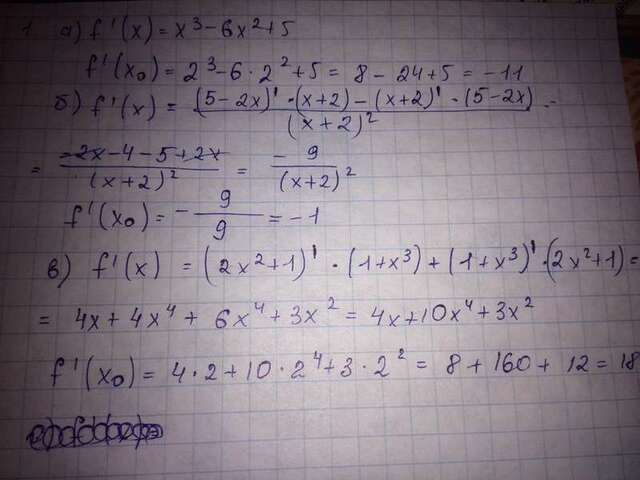 1 а) f'(x) = x³ - 6x² + 5
f'(x₀) = 2³ - 6 · 2² + 5 = 8 - 24 + 5 = -11
б) f'(x) = ((5-2x)' · (x+2) - (x+2)' · (5-2x)) / (x+2)² =
= (-2x - 4 - 5 + 2x) / (x+2)² = - 9 / (x+2)²
f'(x₀) = - 9 / 9 = -1
в) f'(x) = (2x² + 1)' · (1 + x³) + (1 + x³)' · (2x² + 1) =
= 4x + 4x⁴ + 6x⁴ + 3x² = 4x + 10x⁴ + 3x²
f'(x₀) = 4 · 2 + 10 · 2⁴ + 3 · 2² = 8 + 160 + 12 = 18